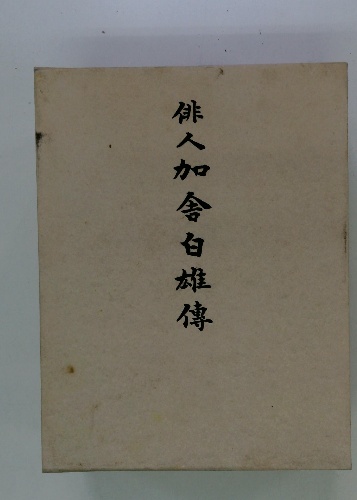 俳人加舎白雄傳